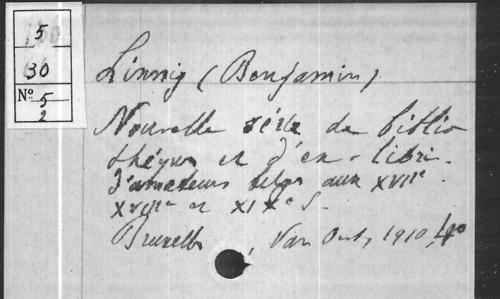 5
30
Nº 5
2
Linnig (Benjamin)
Nouvelle série de biblio
thèques et d'ex-libris
d'amateurs belges aux XVIIe
XVIIIe et XIXe S.
Bruxelles, Van Oest, 1910, 4º